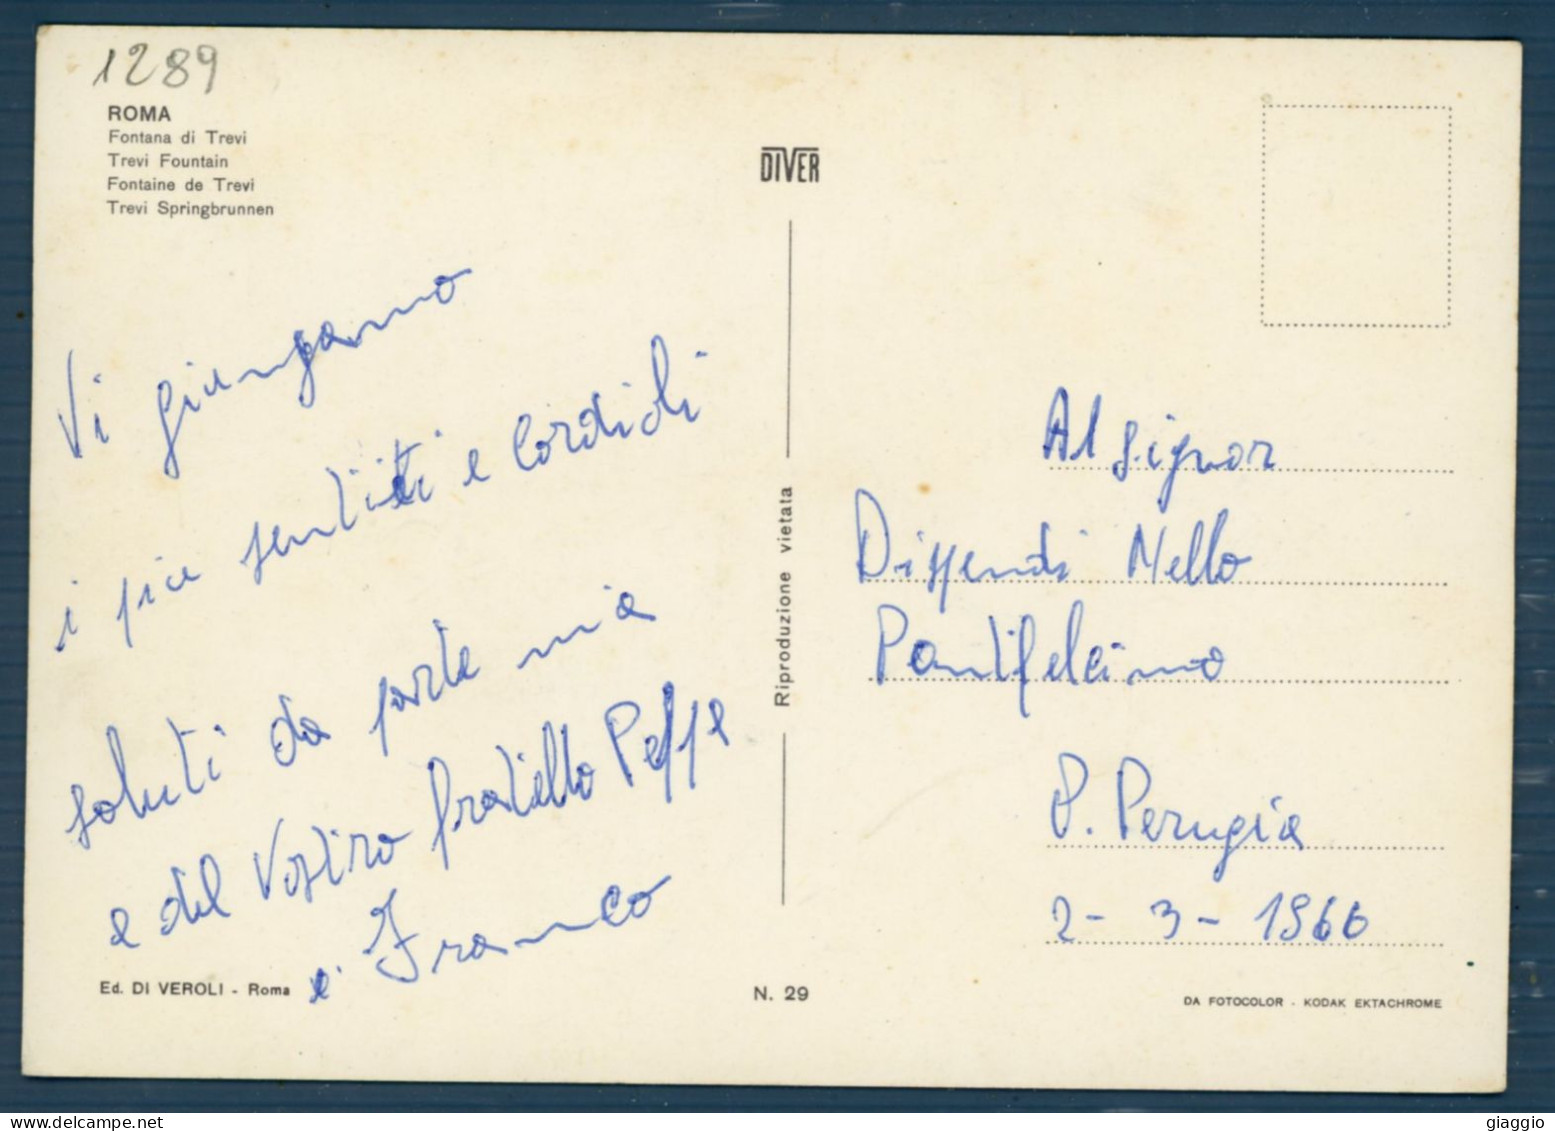 1289
ROMA
Fontana di Trevi
Trevi Fountain
Fontaine de Trevi
Trevi Springbrunnen
DIVER
Vi giungano
i piu sentiti e cordiali
saluti da parte mia
e del Vostro fratello Peppe
e Franco
Riproduzione vietata
Al Signor
Nello
Pontifelcino
P. Perugia
2-3-1966
Ed. DI VEROLI - Roma
N. 29
DA FOTOCOLOR - KODAK EKTACHROME
giaggio